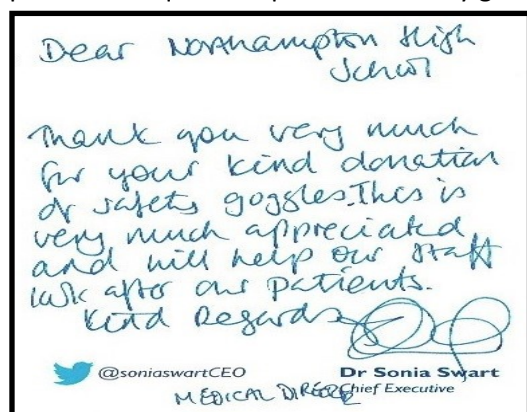 Dear Northampton High
School
Thank you very much
for your kind donation
of safety goggles. This is
very much appreciated
and will help our staff
look after our patients.
Kind Regards
@soniaswartCEO
Dr Sonia Swart
Chief Executive
MEDICAL